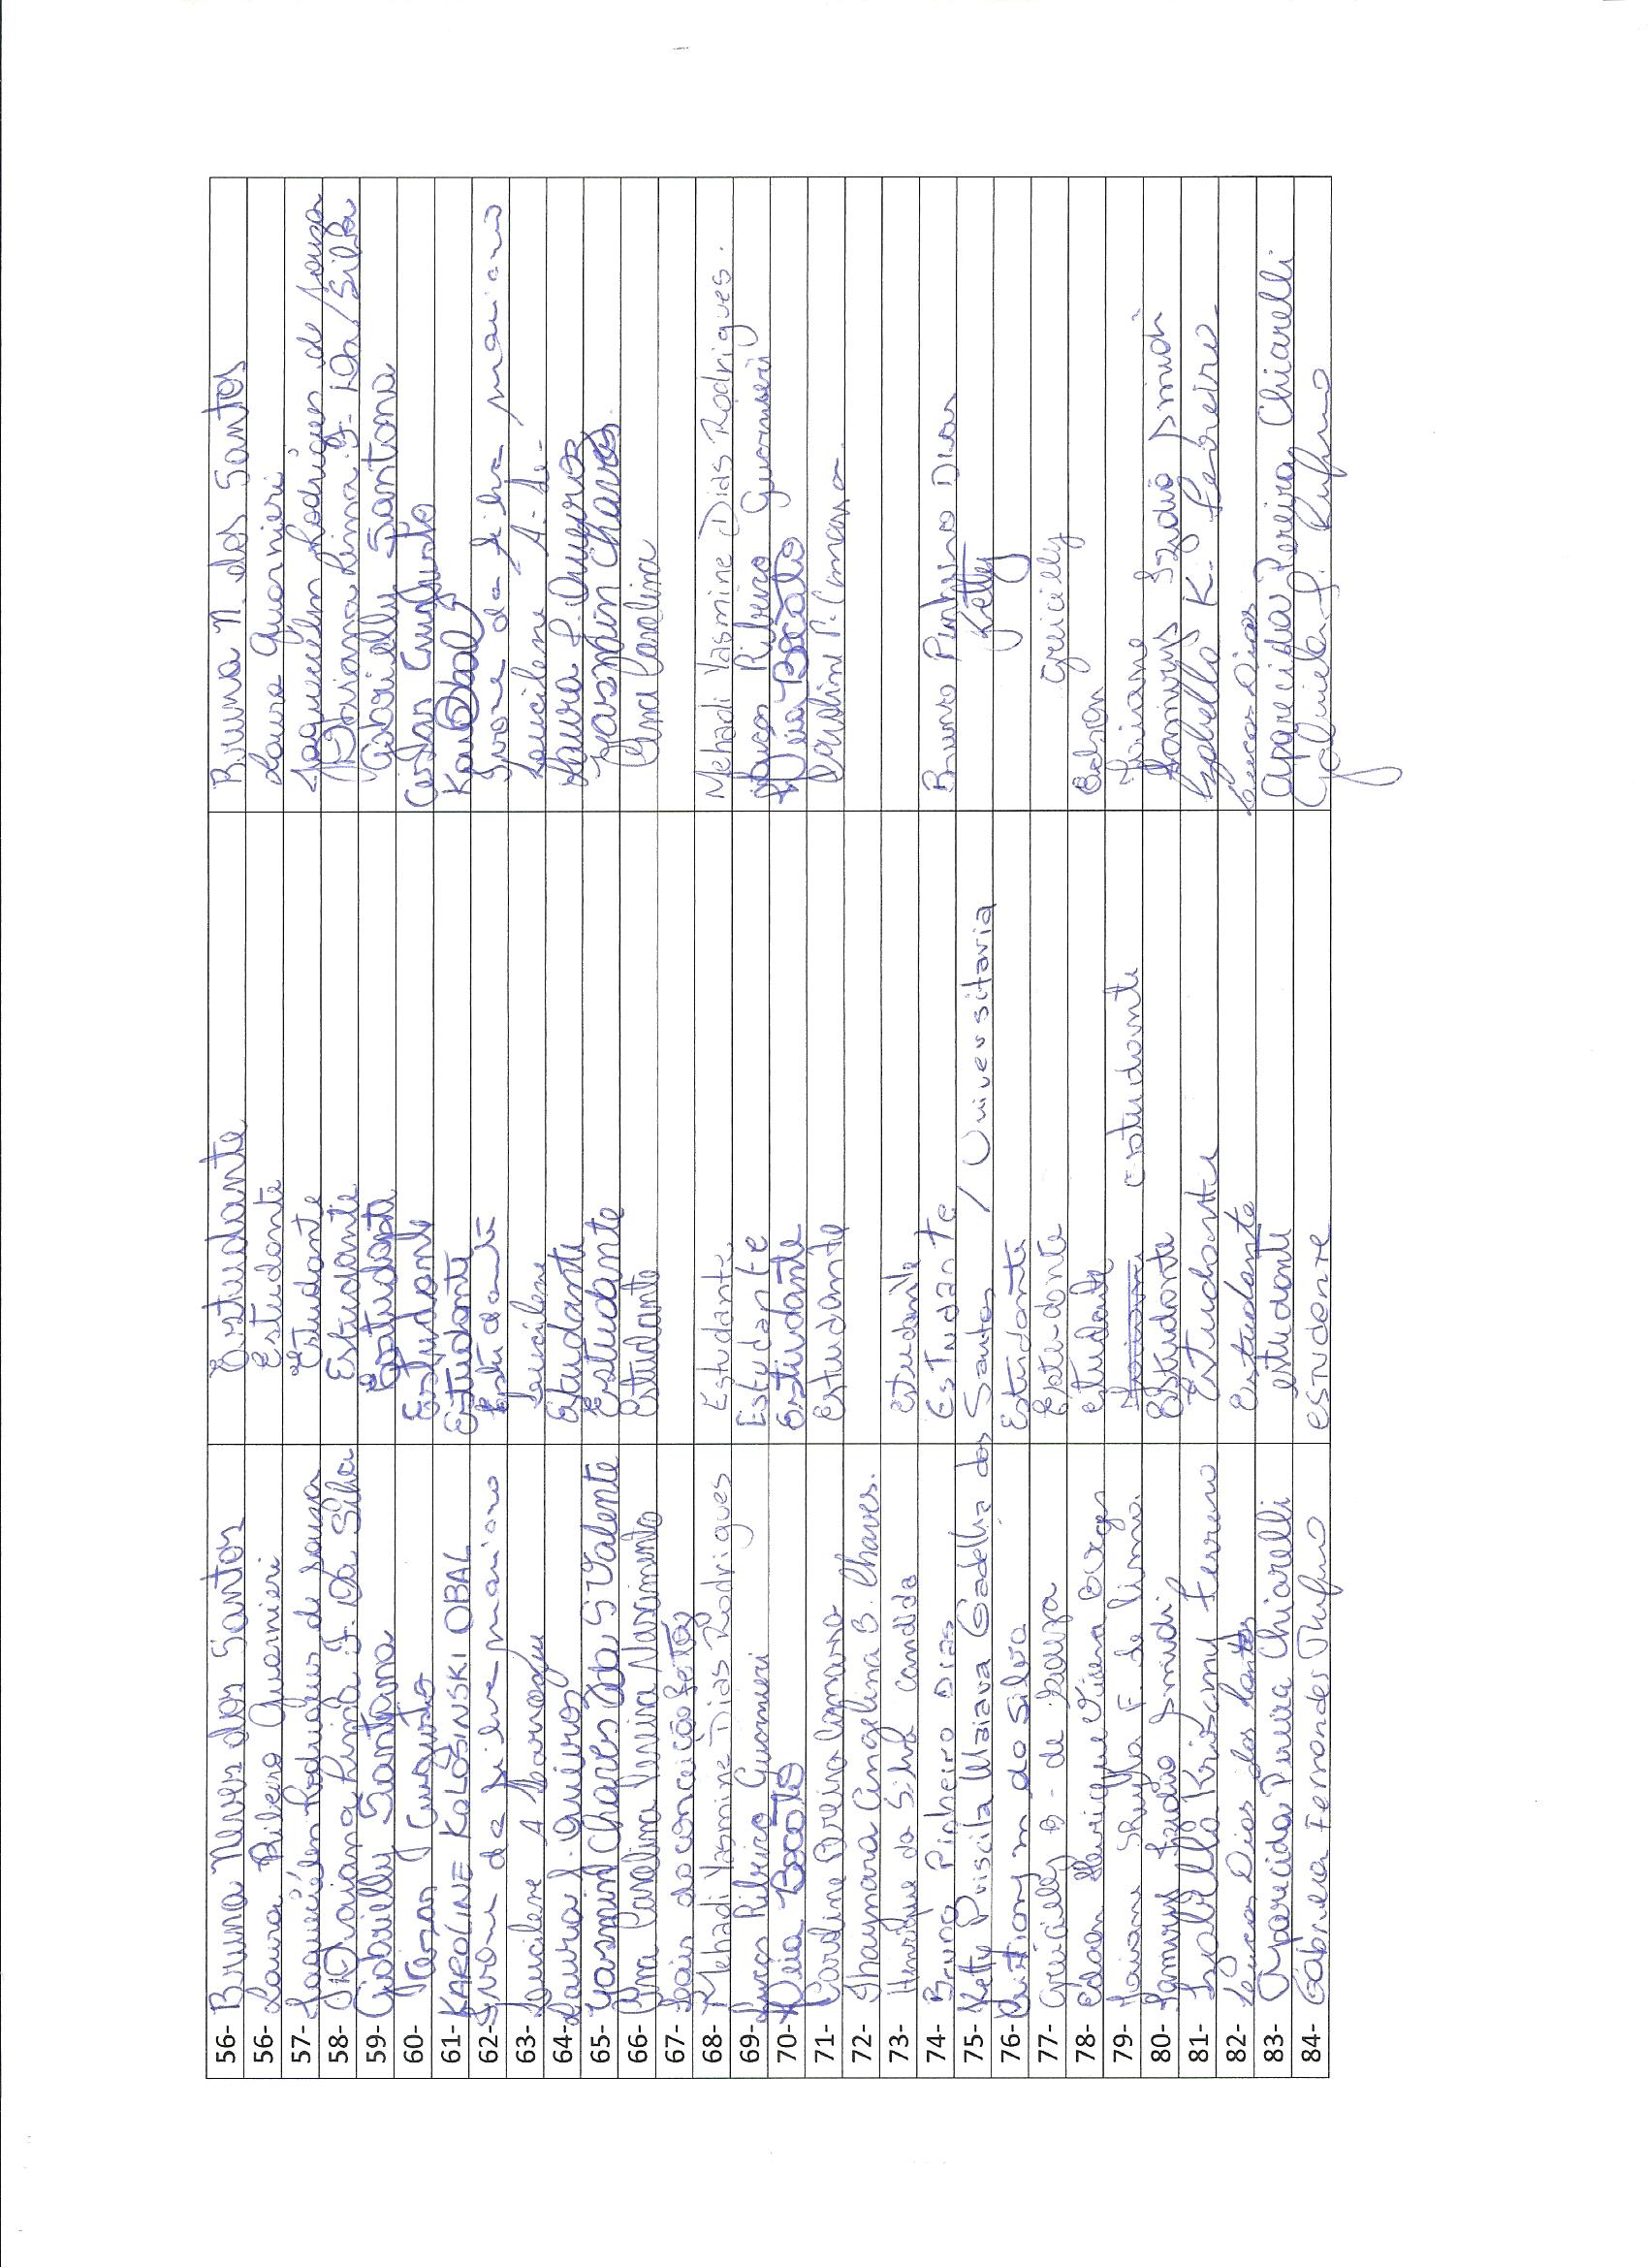 56- Bruna Neves dos Santos Estudante Bruna N. dos Santos
56- Laura Ribeiro Guarnieri Estudante Laura Guarnieri
57- Jaquelém Rodrigues de Souza Estudante Jaquelém Rodrigues de Souza
58- Driana Lima J. Da Silva Estudante Driana Lima J. Da Silva
59- Gabrielly Santana Estudante Gabrielly Santana
60- Augusto Estudante Augusto
61- KAROLINE KOLOSINSKI OBAL Estudante Obal
62- Ivone da silva mariano Estudante Ivone da silva mariano
63- Lucilene A Lucilene Lucilene A.
64- Laura Estudante Laura
65- Yasmin Chaves da S Valente Estudante Yasmin Chaves
66- Ana Carolina Vieira Nascimento Estudante Ana Carolina
67- Lais da conceição
68- Mehadi Yasmine Dias Rodrigues Estudante. Mehadi Yasmine Dias Rodrigues.
69- Lucas Ribeiro Guarnieri Estudante Lucas Ribeiro Guarnieri
70- Bocato Estudante Bocato
71- Caroline Pereira Camara Estudante Caroline P. Camara
72- Thaymara Angelina B. Chaves.
73- Henrique da Silva candida estudante
74- Bruno Pinheiro Dias Estudante Bruno Pinheiro Dias
75- Ketty Priscila Maiara Gadelha dos Santos / Univessitaria Ketty
76- m da Silva Estudante
77- B. de Souza Estudante
78- Edson Henrique Vieira Borges estudante Edson
79- F. de Lima. estudante
80- Estudante
81- Izabella Ferreiro Estudante Izabella K. Ferreiro
82- Lucas Dias dos Santos Estudante Lucas Dias
83- Aparecida Pereira Chiarelli estudante Aparecida Pereira Chiarelli
84- Gabriela Fernandes Rufino estudante Gabriela F. Rufino